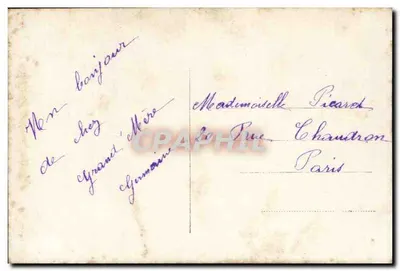 Un bonjour
de chez
Grand' Mère
Germaine
Mademoiselle Picard
20 Rue Chaudron
Paris
CPAPHIL